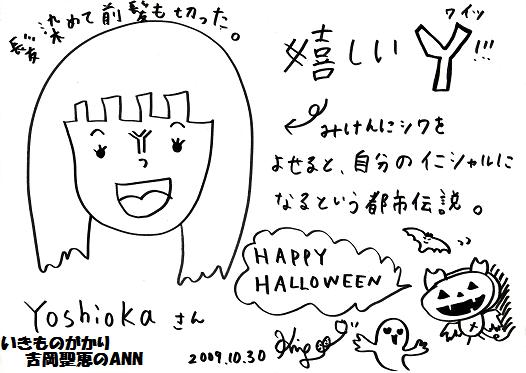 髪染めて前髪も切った。
ワイッ
嬉しいY!!!
みけんにシワを
よせると、自分のイニシャルに
なるという都市伝説。
HAPPY
HALLOWEEN
Yoshioka さん
いきものがかり
吉岡聖恵のANN
2009.10.30